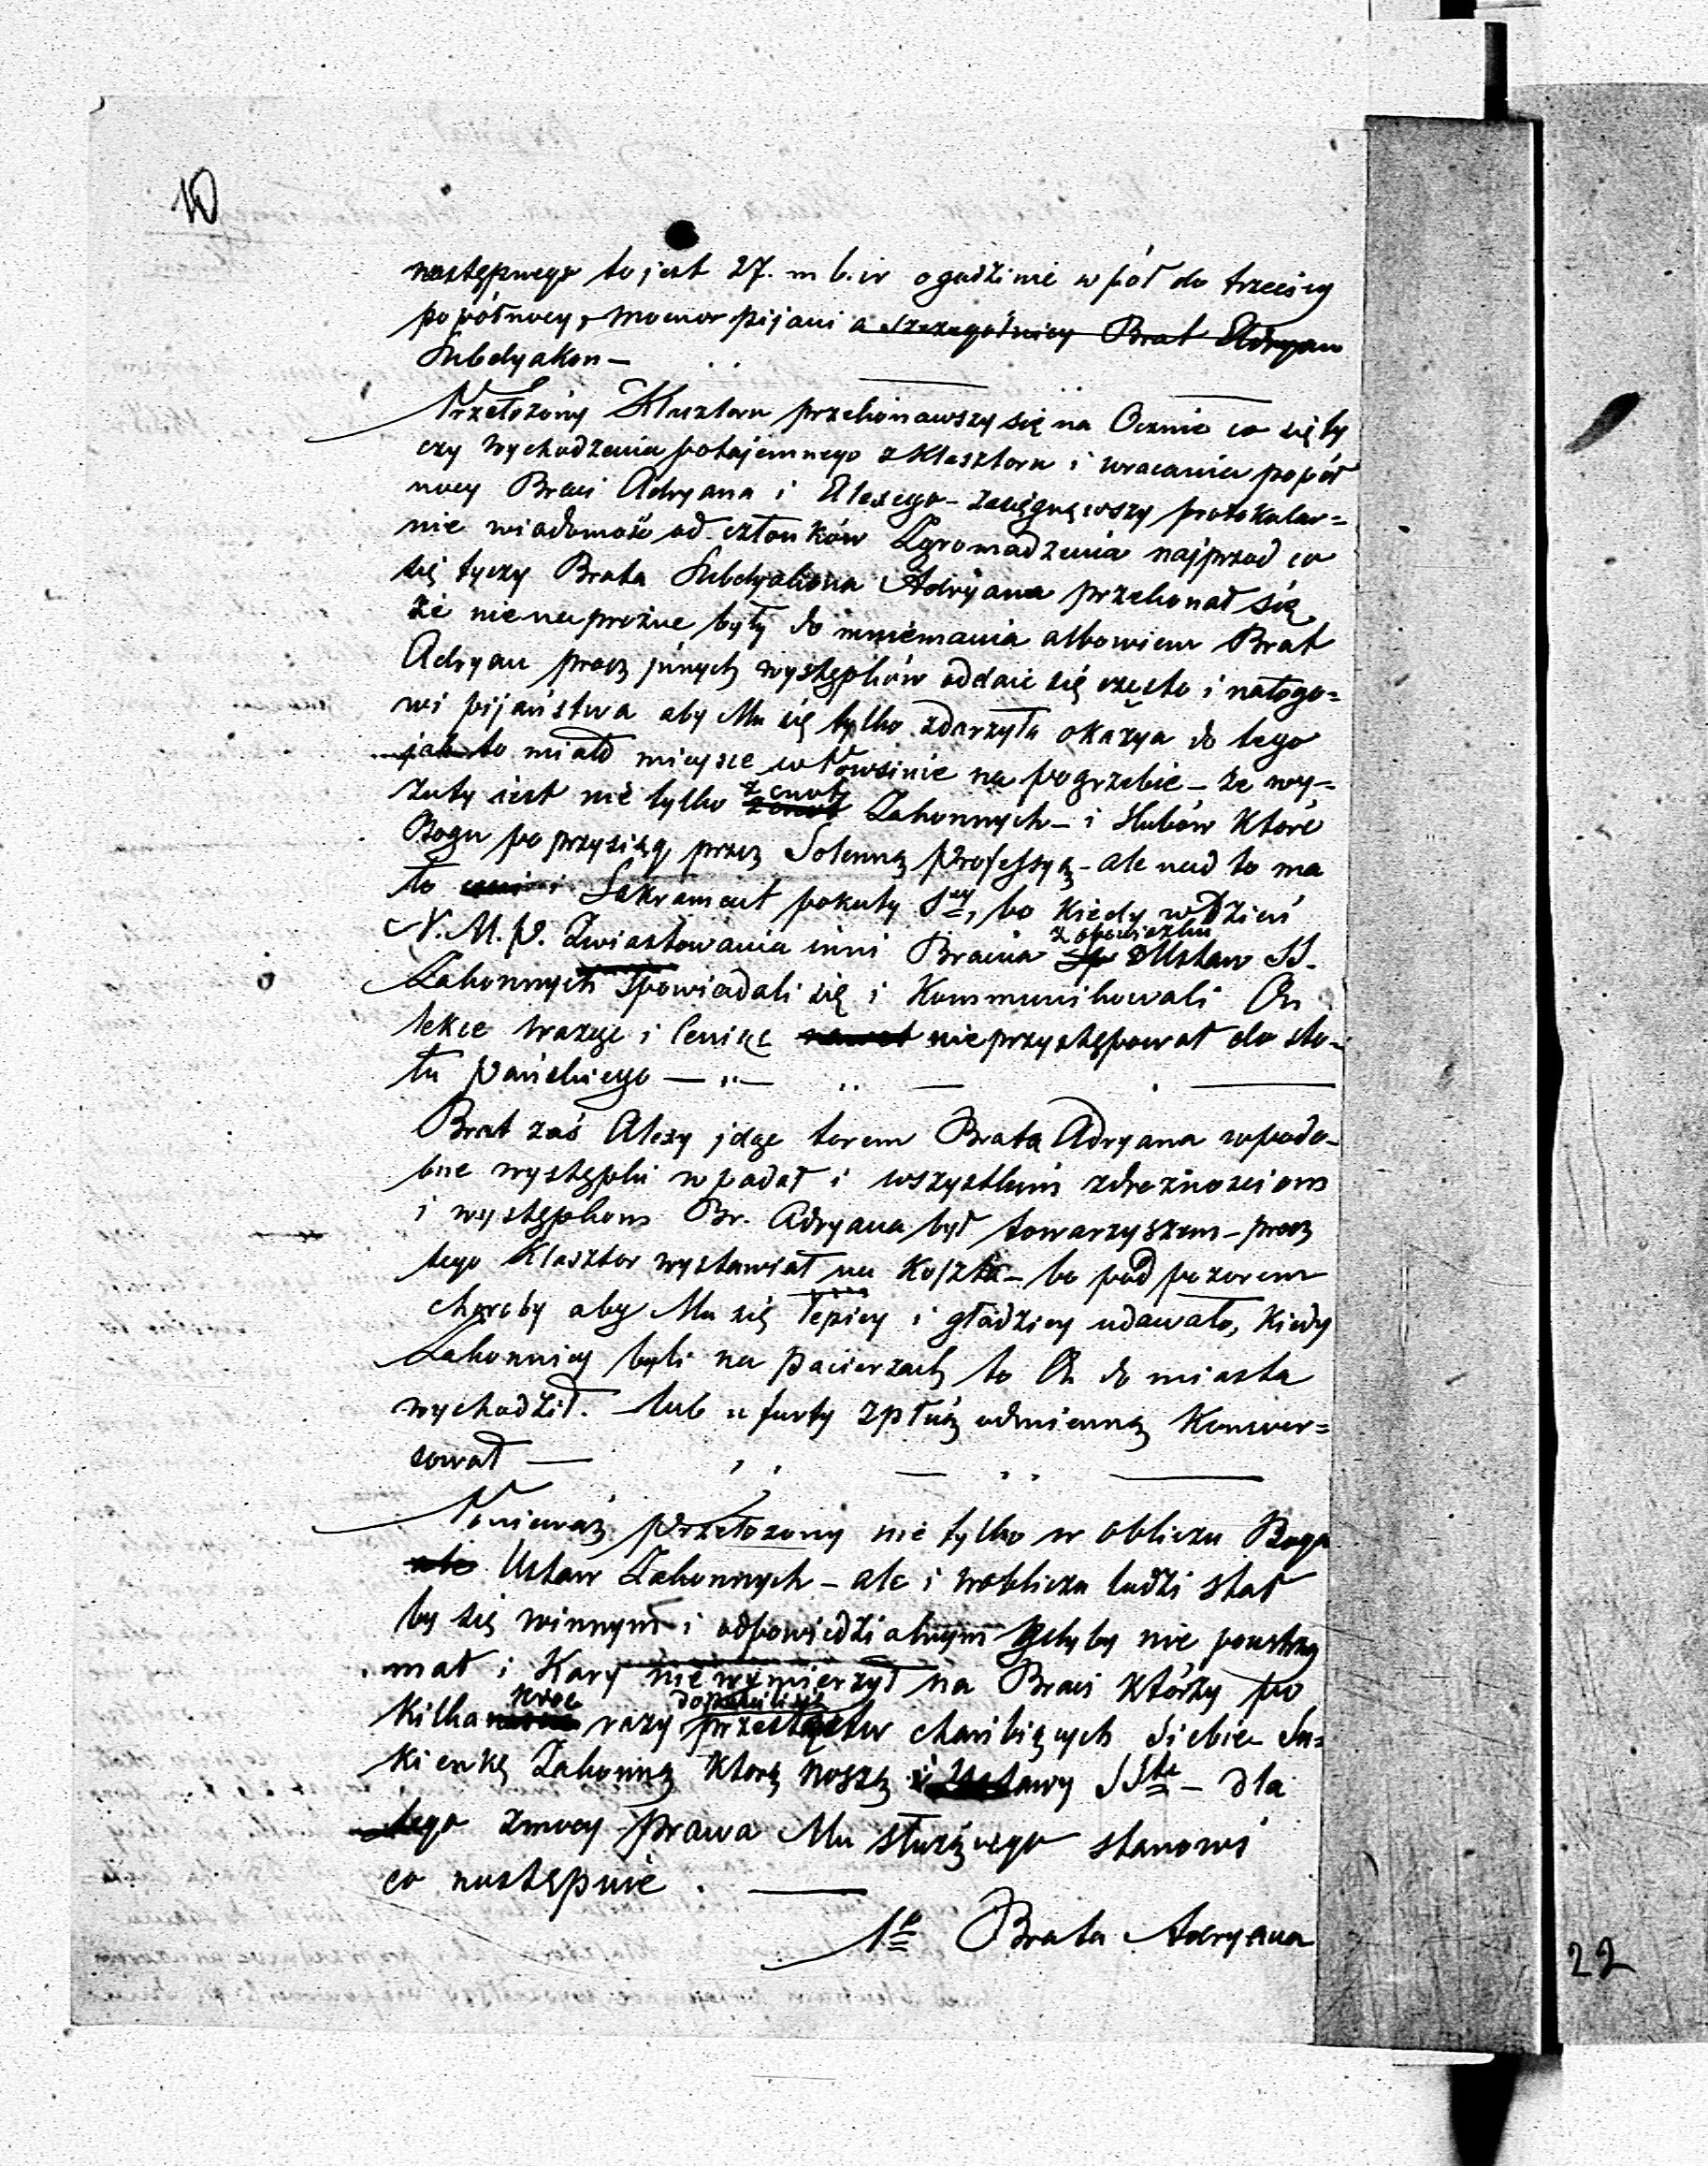 10
następnego to jest 27. m b. ir o godzinie w pół do trzeciey
popółnocy, mocno pijani a szczegolniey Brat Adryan
Subdyakon —
Przełożony Klasztoru przekonawszy się na Ocznie co się ty
czy wychodzenia potajemnego z Klasztoru i wracania popół
nocy Braci Adryana i Alexego - zasięgnąwszy protokolar=
nie wiadomość od członków Zgromadzenia najprzod co
się tyczy Brata Subdyakona Adryana przekonał się
że nie naprożne były do mniemania albowiem Brat
Adryan procz jnnych występków oddaie się często i nałogo=
wi pijaństwa aby Mu się tylko zdarzyła okazya do tego
jak to miało mieysce w Łowsinie na pogrzebie - że wy=
zuty iest nie tylko z cnoty Zakonnych - i ślubów które
Bogu poprzysiągł przez Solenną Professyą - ale nad to ma
ło ceni i Sakrament pokuty S, bo kiedy w Dzień
N. M. P. Zwiastowania inni Bracia z obowiązku Ustaw SS.
Zakonnych spowiadali się i Kommunikowali On
lekce ważąc i leniąc nawet nie przystępował do sto=
łu Pańskiego —
Brat zaś Alexy jdąc torem Brata Adryana w podo-
bne występki wpadał i wszystkim zdrożnosciom
i występkom Br. Adryana był towarzyszem - procz
tego Klasztor wystawiał na Koszta - bo pod pozorem
choroby aby Mu się lepiey i gładziey udawało, Kiedy
Zakonnicy byli na pacierzach to On do miasta
wychodził. lub u furty z płcią odmienną Konwer=
sował —
Ponieważ Przełożony nie tylko w obliczu Boga
ale Ustaw Zakonnych - ale i w obliczu ludzi stał
by się winnym i odpowiedzialnym gdyby nie powstrzy
mał i Kary nie wymierzył na Braci którzy po
kilka kroc razy dopuścili się przestępstw chanibiących Siebie Su=
kienkę Zakonną którą noszą i Ustawy SSte - dla
tego z mocy prawa Mu służącego stanowi
co następuie .
1o Brata Adryana
22